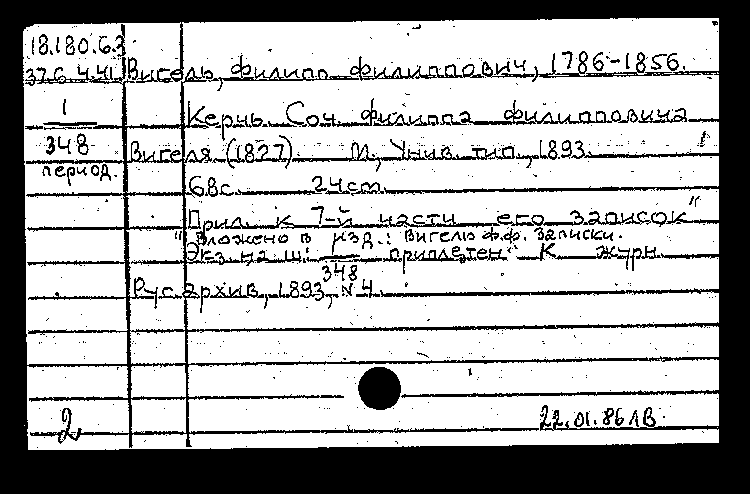 18.180.6.3
37.6.4.41 Вигель, Филипп Филиппович, 1786-1856.
1 Кернь. Соч. Филиппа Филипповича
348 Вигеля (1827). М., Унив. тип., 1893.
период.
68с. 24cm.
Прил. к 7-й части его записок"
"Вложено в изд.: Вигелю Ф.Ф. Записки.
Экз. на ш: 348 приплетен" К журн.
Рус. архив, 1893, N 4.
2 22.01.86 ЛВ.